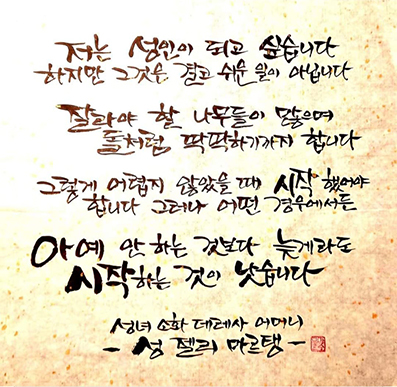 저는 성인이 되고 싶습니다
하지만 그것은 결코 쉬운 일이 아닙니다
잘라야 할 나무들이 많으며
돌처럼 딱딱하기까지 합니다
그렇게 어렵지 않았을 때 시작 했어야
합니다 그러나 어떤 경우에서든
아예 안 하는 것보다 늦게라도
시작하는 것이 낫습니다
성녀 소화 데레사 어머니
- 성 젤리 마르탱 -